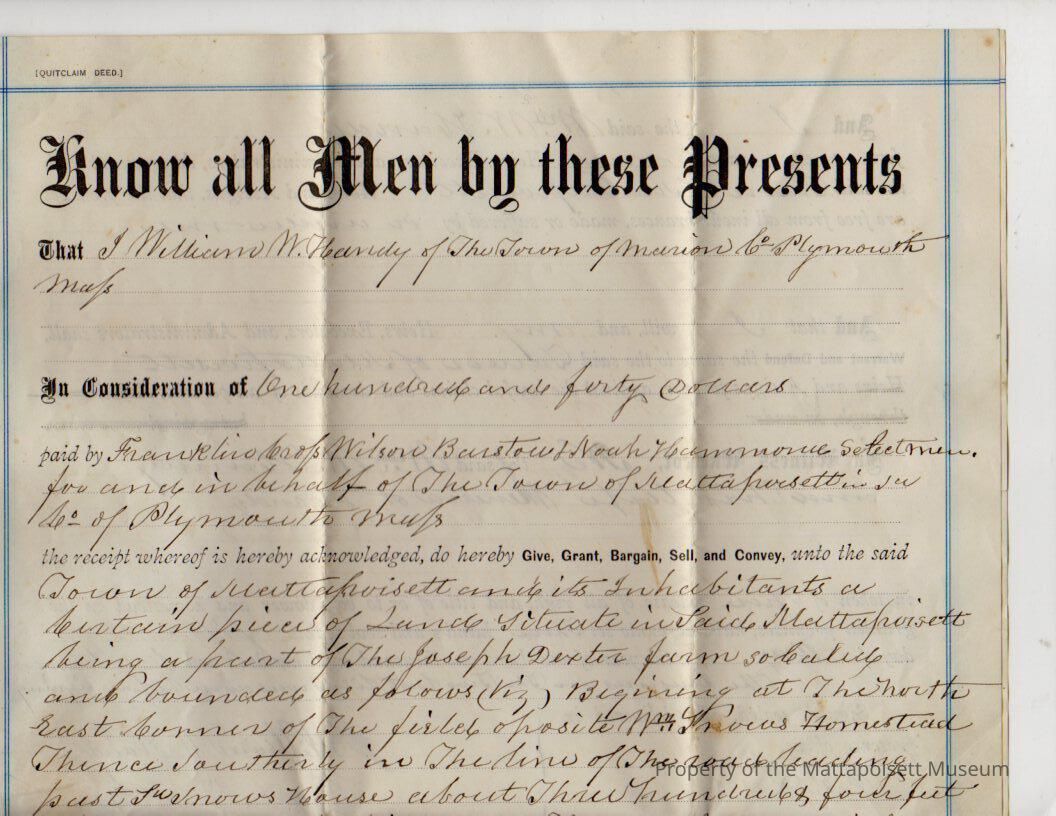 [QUITCLAIM DEED.]
Know all Men by these Presents
That I William W. Handy of The Town of Marion Co Plymouth
Mass
In Consideration of One hundred and forty Dollars
paid by Franklin Cross Wilson Barstow & Noah Hammond Selectmen.
for and in behalf of The Town of Mattapoisett in
Co of Plymouth Mass
the receipt whereof is hereby acknowledged, do hereby Give, Grant, Bargain, Sell, and Convey, unto the said
Town of Mattapoisett and its Inhabitants a
Certain piece of Land Situate in Said Mattapoisett
being a part of The Joseph Dexter farm so Caled
and bounded as folows (Viz) Begining at The North
East Corner of The field oposite Snows Homestead
Thence Southerly in The line of The road leading
past Sd Snows House about Three hundred & four feet
Property of the Mattapoisett Museum